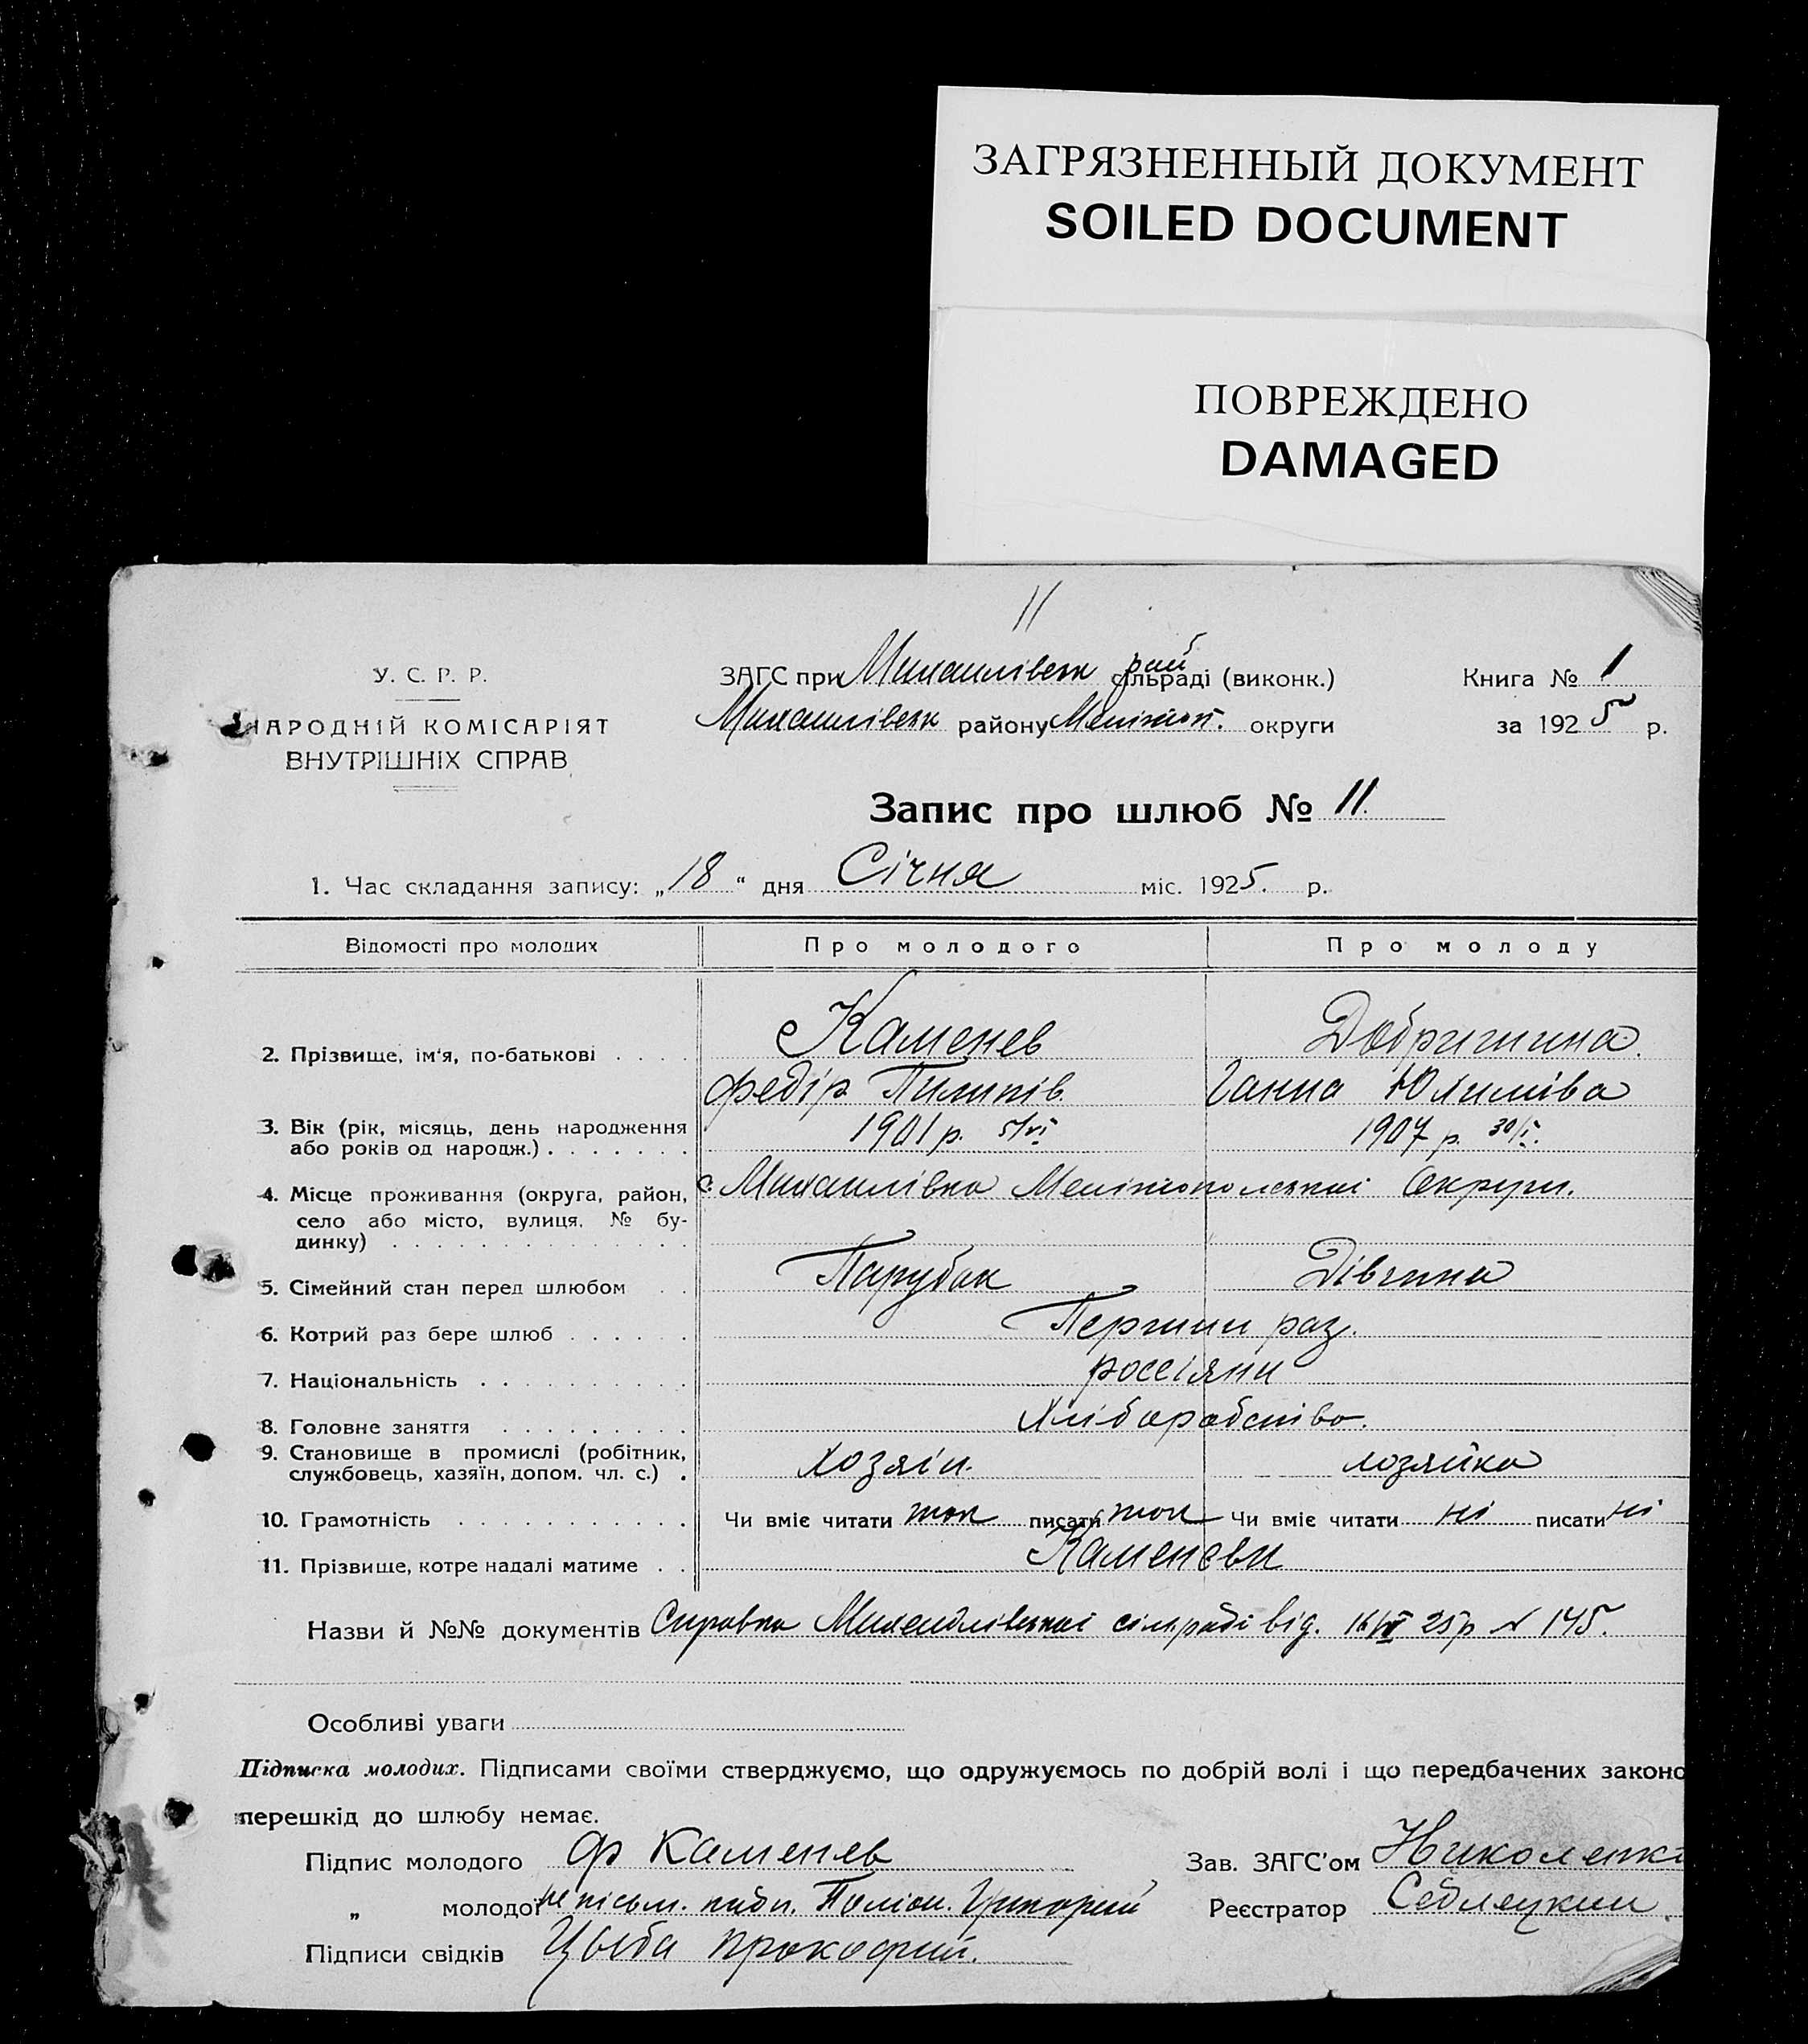 ЗАГРЯЗНЕННЫЙ ДОКУМЕНТ
SOILED DOCUMENT
ПОВРЕЖДЕНО
DAMAGED
11
У. С. Р. Р.
НАРОДНІЙ КОМІСАРІЯТ
ВНУТРІШНІХ СПРАВ
ЗАГС при Михайлівськ рай сільраді (виконк.)
Михайлівськ району Мелітоп. округи
Книга № 1
за 1925 р.
Запис про шлюб № 11.
1. Час складання запису: „18“ дня Січня міс. 1925. р.
Відомості про молодих Про молодого Про молоду
2. Прізвище, ім'я, по-батькові Каменев Добришина
Федір Пилипів Ганна
3. Вік (рік, місяць, день народження 1901 р. 5/VI 1907 р. 30/I.
або років од народж.)
4. Місце проживання (округа, район, с. Михайлівка Мелітопольськаі Округи.
село або місто, вулиця, № бу-
динку)
5. Сімейний стан перед шлюбом Парубок Дівчина
6. Котрий раз бере шлюб Перший раз.
7. Національність россіяни
8. Головне заняття Хліборобство.
9. Становище в промислі (робітник, хозяін. хозяйка
службовець, хазяїн, допом. чл. с.)
10. Грамотність Чи вміє читати так писати так Чи вміє читати ні писати ні
11. Прізвище, котре надалі матиме Каменеви
Назви й №№ документів Справка Михайлівськаі сільраді від. 25 р № 145.
Особливі уваги
Підписка молодих. Підписами своїми стверджуємо, що одружуємось по добрій волі і що передбачених законо
перешкід до шлюбу немає.
Підпис молодого Ф Каменев Зав. ЗАГС'ом
„ молодої не письм. Григорий Реєстратор Седлецкий
Підписи свідків Цыба Прокофий.